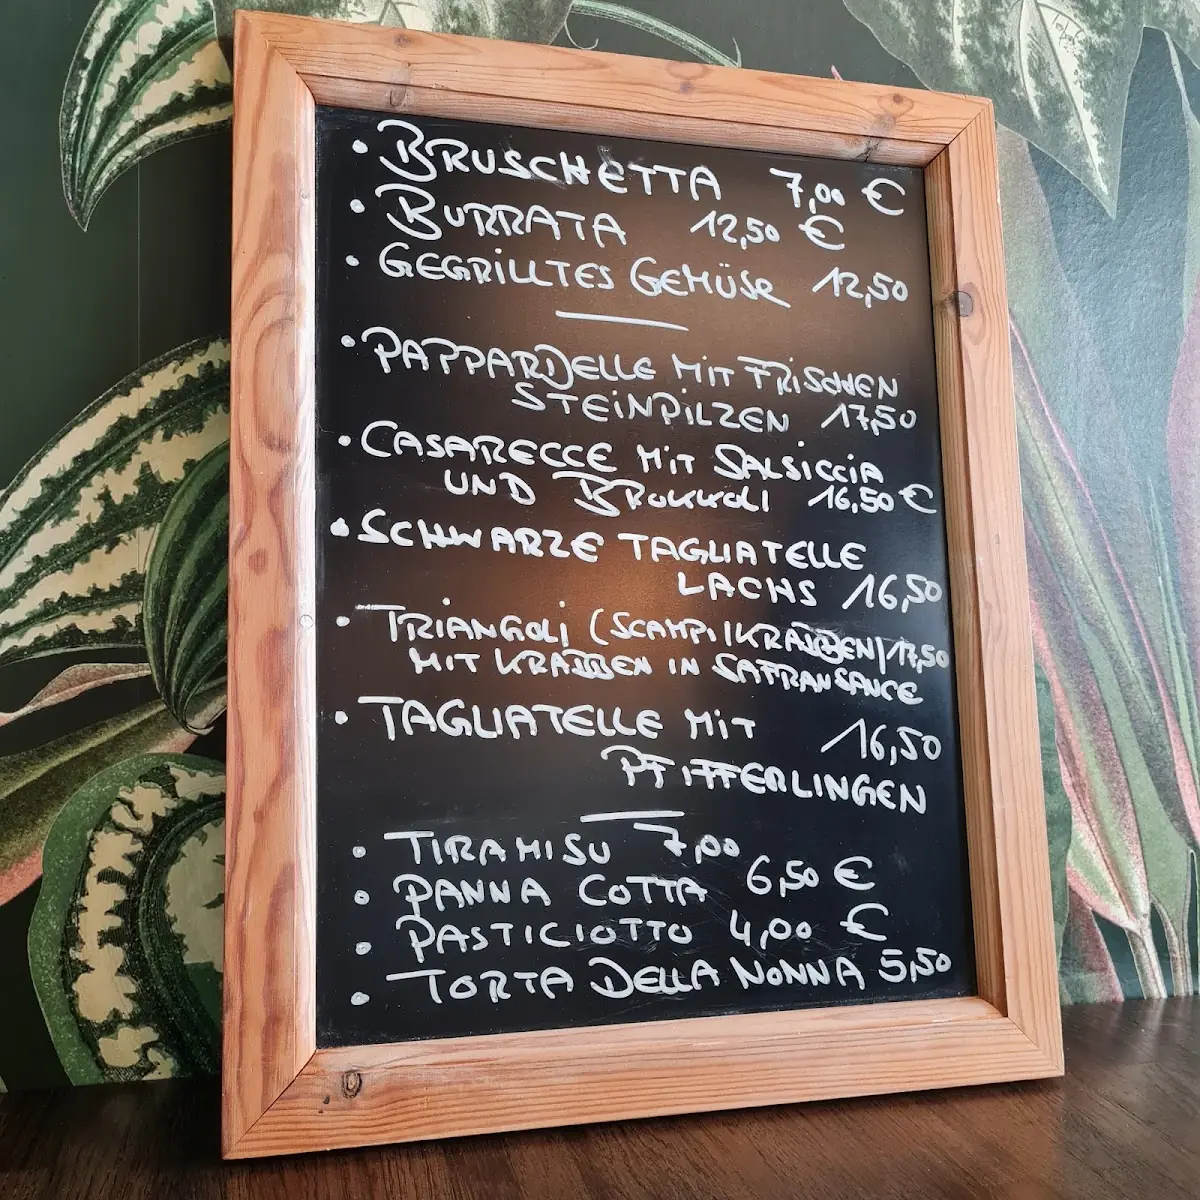 • BRUSCHETTA 7,00 €
• BURRATA 12,50 €
• GEGRILLTES GEMÜSE 12,50
• PAPPARDELLE MIT FRISCHEN
STEINPILZEN 17,50
• CASARECCE MIT SALSICCIA
UND BROKKOLI 16,50 €
• SCHWARZE TAGLIATELLE
LACHS 16,50
• TRIANGOLI (SCAMPI/KRABBEN) 17,50
MIT KRABBEN IN SAFRANSAUCE
• TAGLIATELLE MIT 16,50
PFIFFERLINGEN
• TIRAMISU 7,00
• PANNA COTTA 6,50 €
• PASTICIOTTO 4,00 €
• TORTA DELLA NONNA 5,50